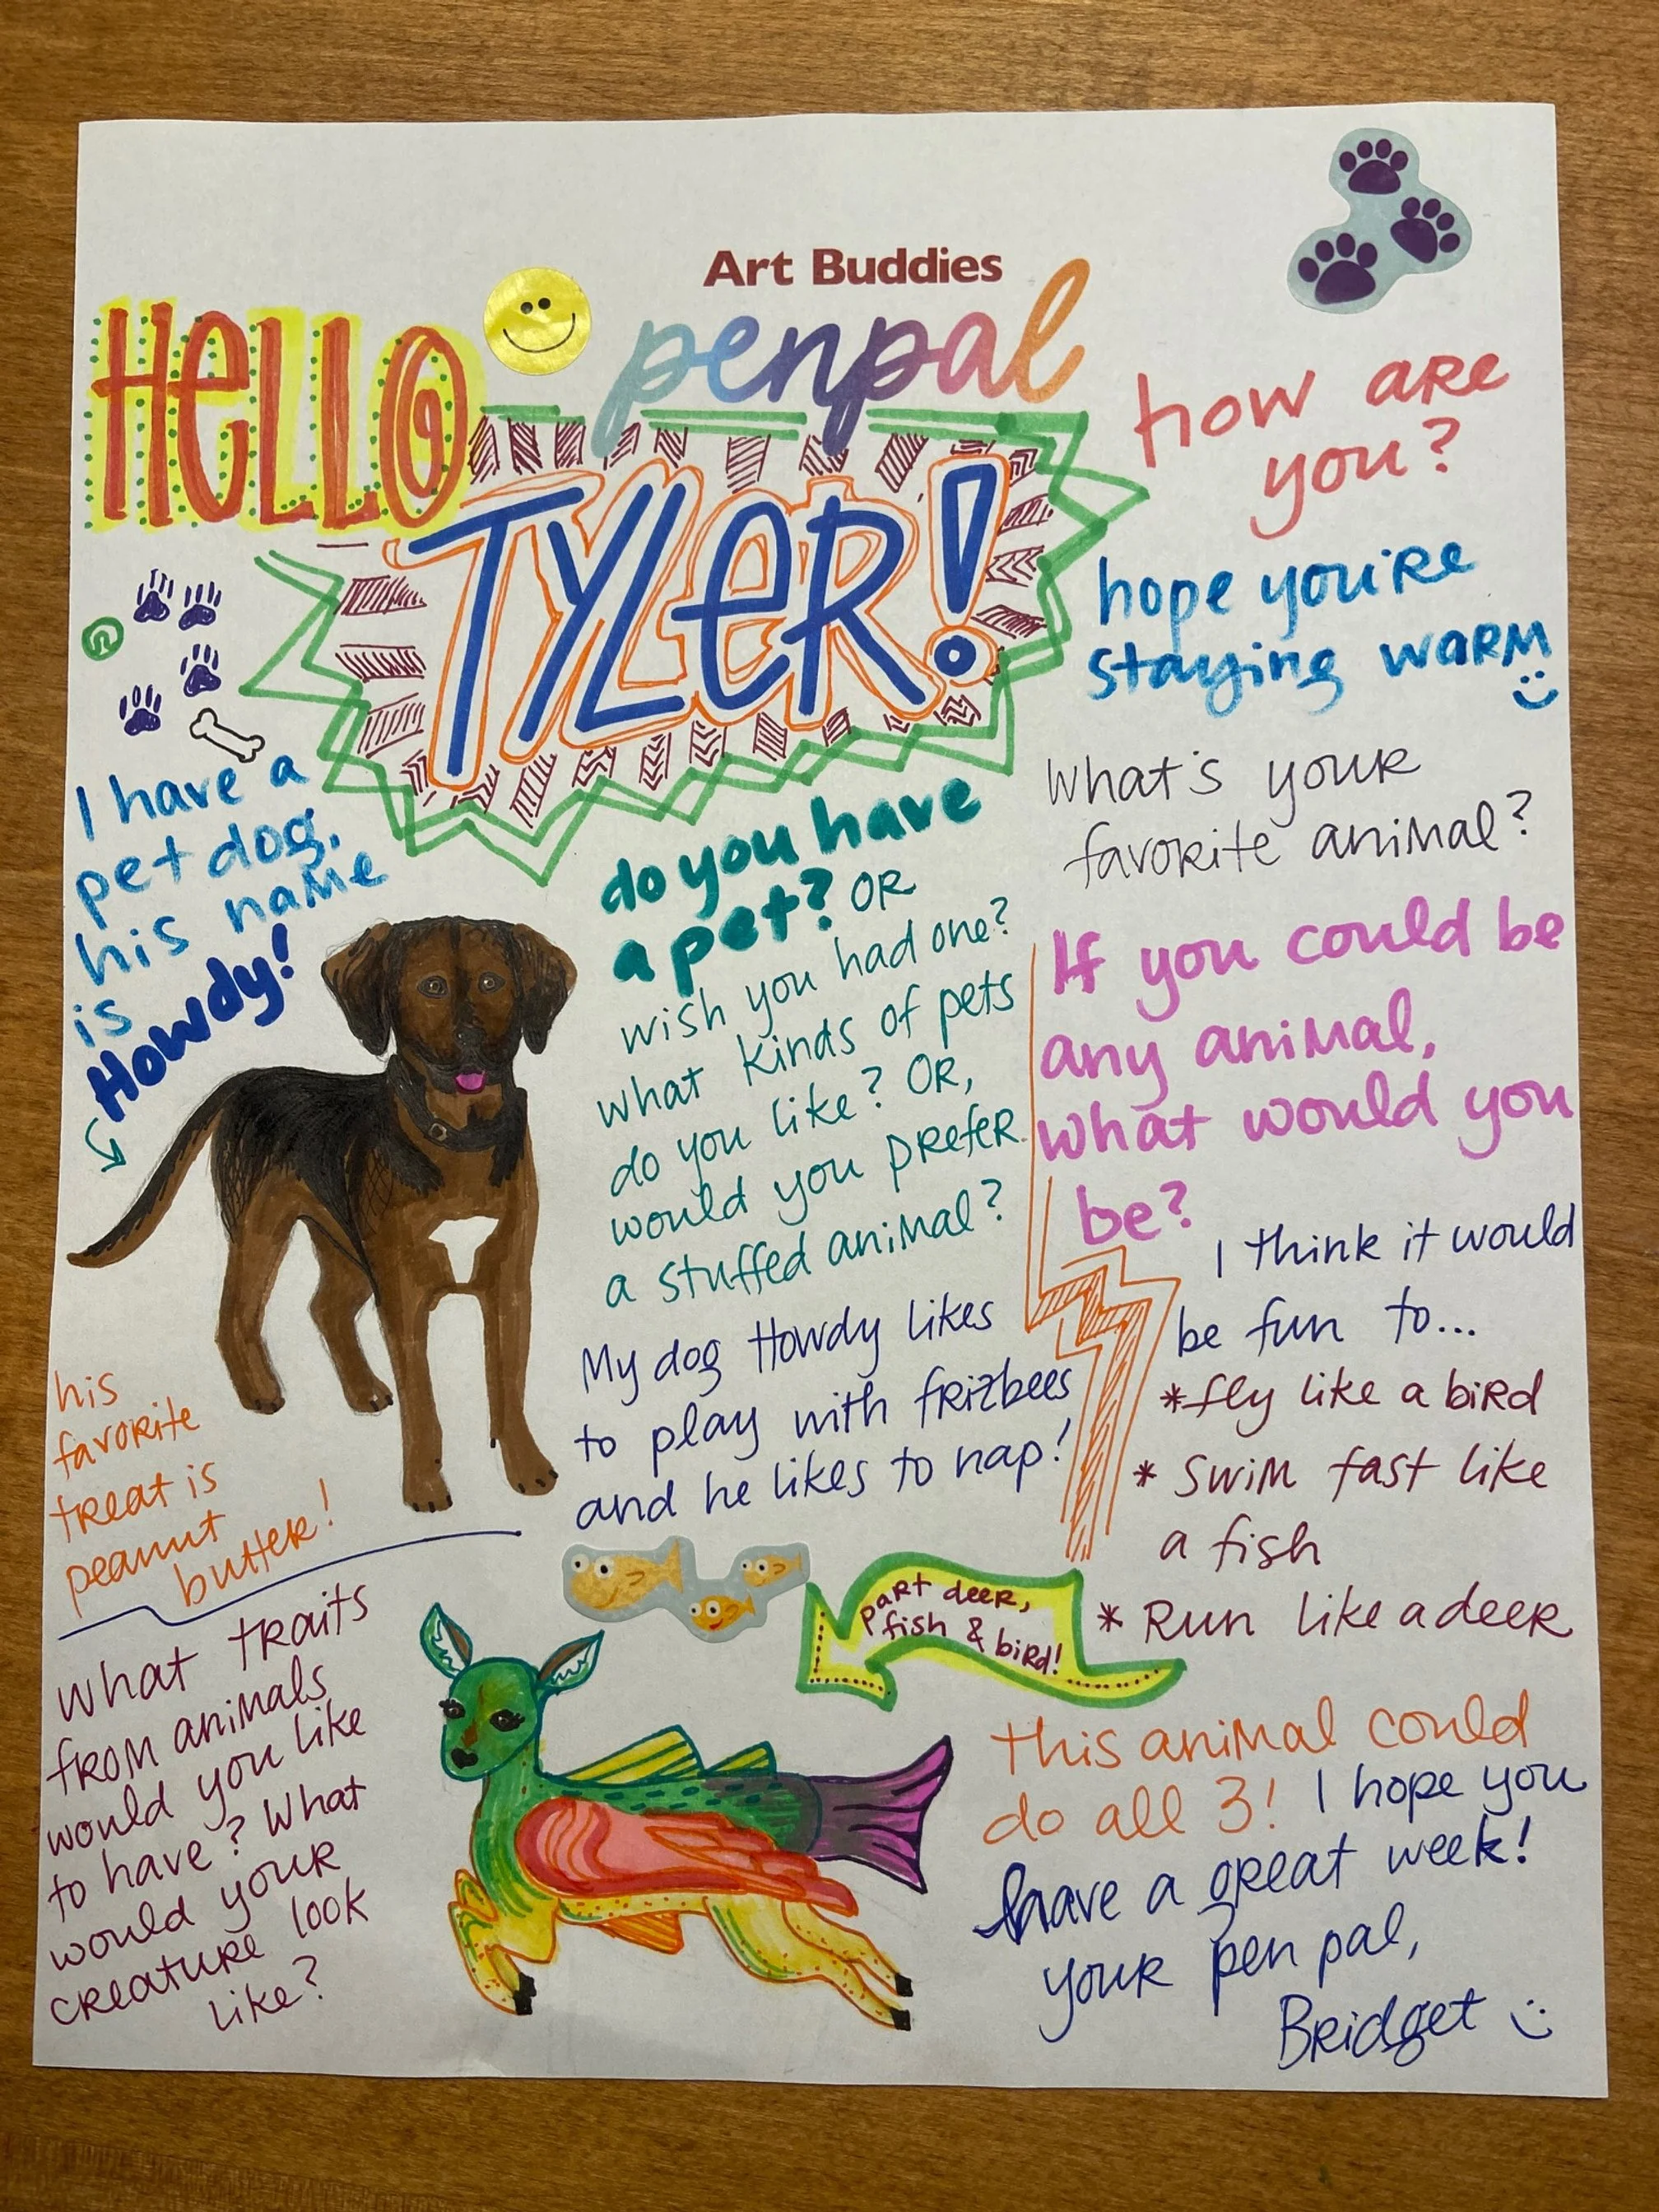 Art Buddies
HELLO
penpal
TYLER!
how are
you?
hope you're
staying warm
I have a
pet dog,
his name
is
Howdy!
do you have
a pet? OR
wish you had one?
what kinds of pets
do you like? OR,
would you prefer
a stuffed animal?
My dog Howdy likes
to play with frizbees
and he likes to nap!
his
favorite
treat is
peanut
butter!
What's your
favorite animal?
If you could be
any animal,
what would you
be?
I think it would
be fun to...
*fly like a bird
* Swim fast like
a fish
* Run like a deer
part deer,
fish & bird!
This animal could
do all 3! I hope you
have a great week!
your pen pal,
Bridget
What traits
from animals
would you like
to have? What
would your
creature look
like?